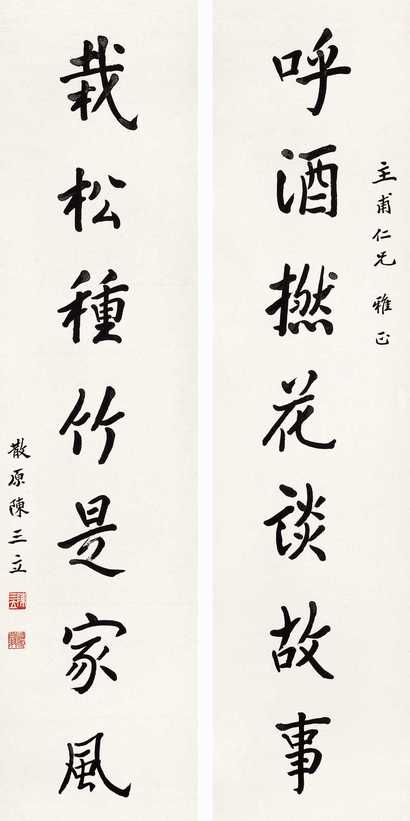 主甫仁兄 雅正
呼酒撚花談故事
栽松種竹是家風
散原陳三立